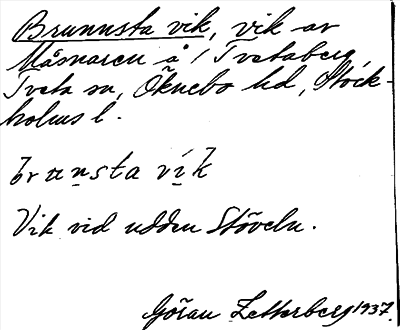 Brunnsta vik, vik av
Måsnaren å / Tvetaberg
Tveta sn, Öknebo hd, Stock-
holms l.
brun̥sta vi̥k
Vik vid udden Stöveln.
Göran Zetterberg 1937.